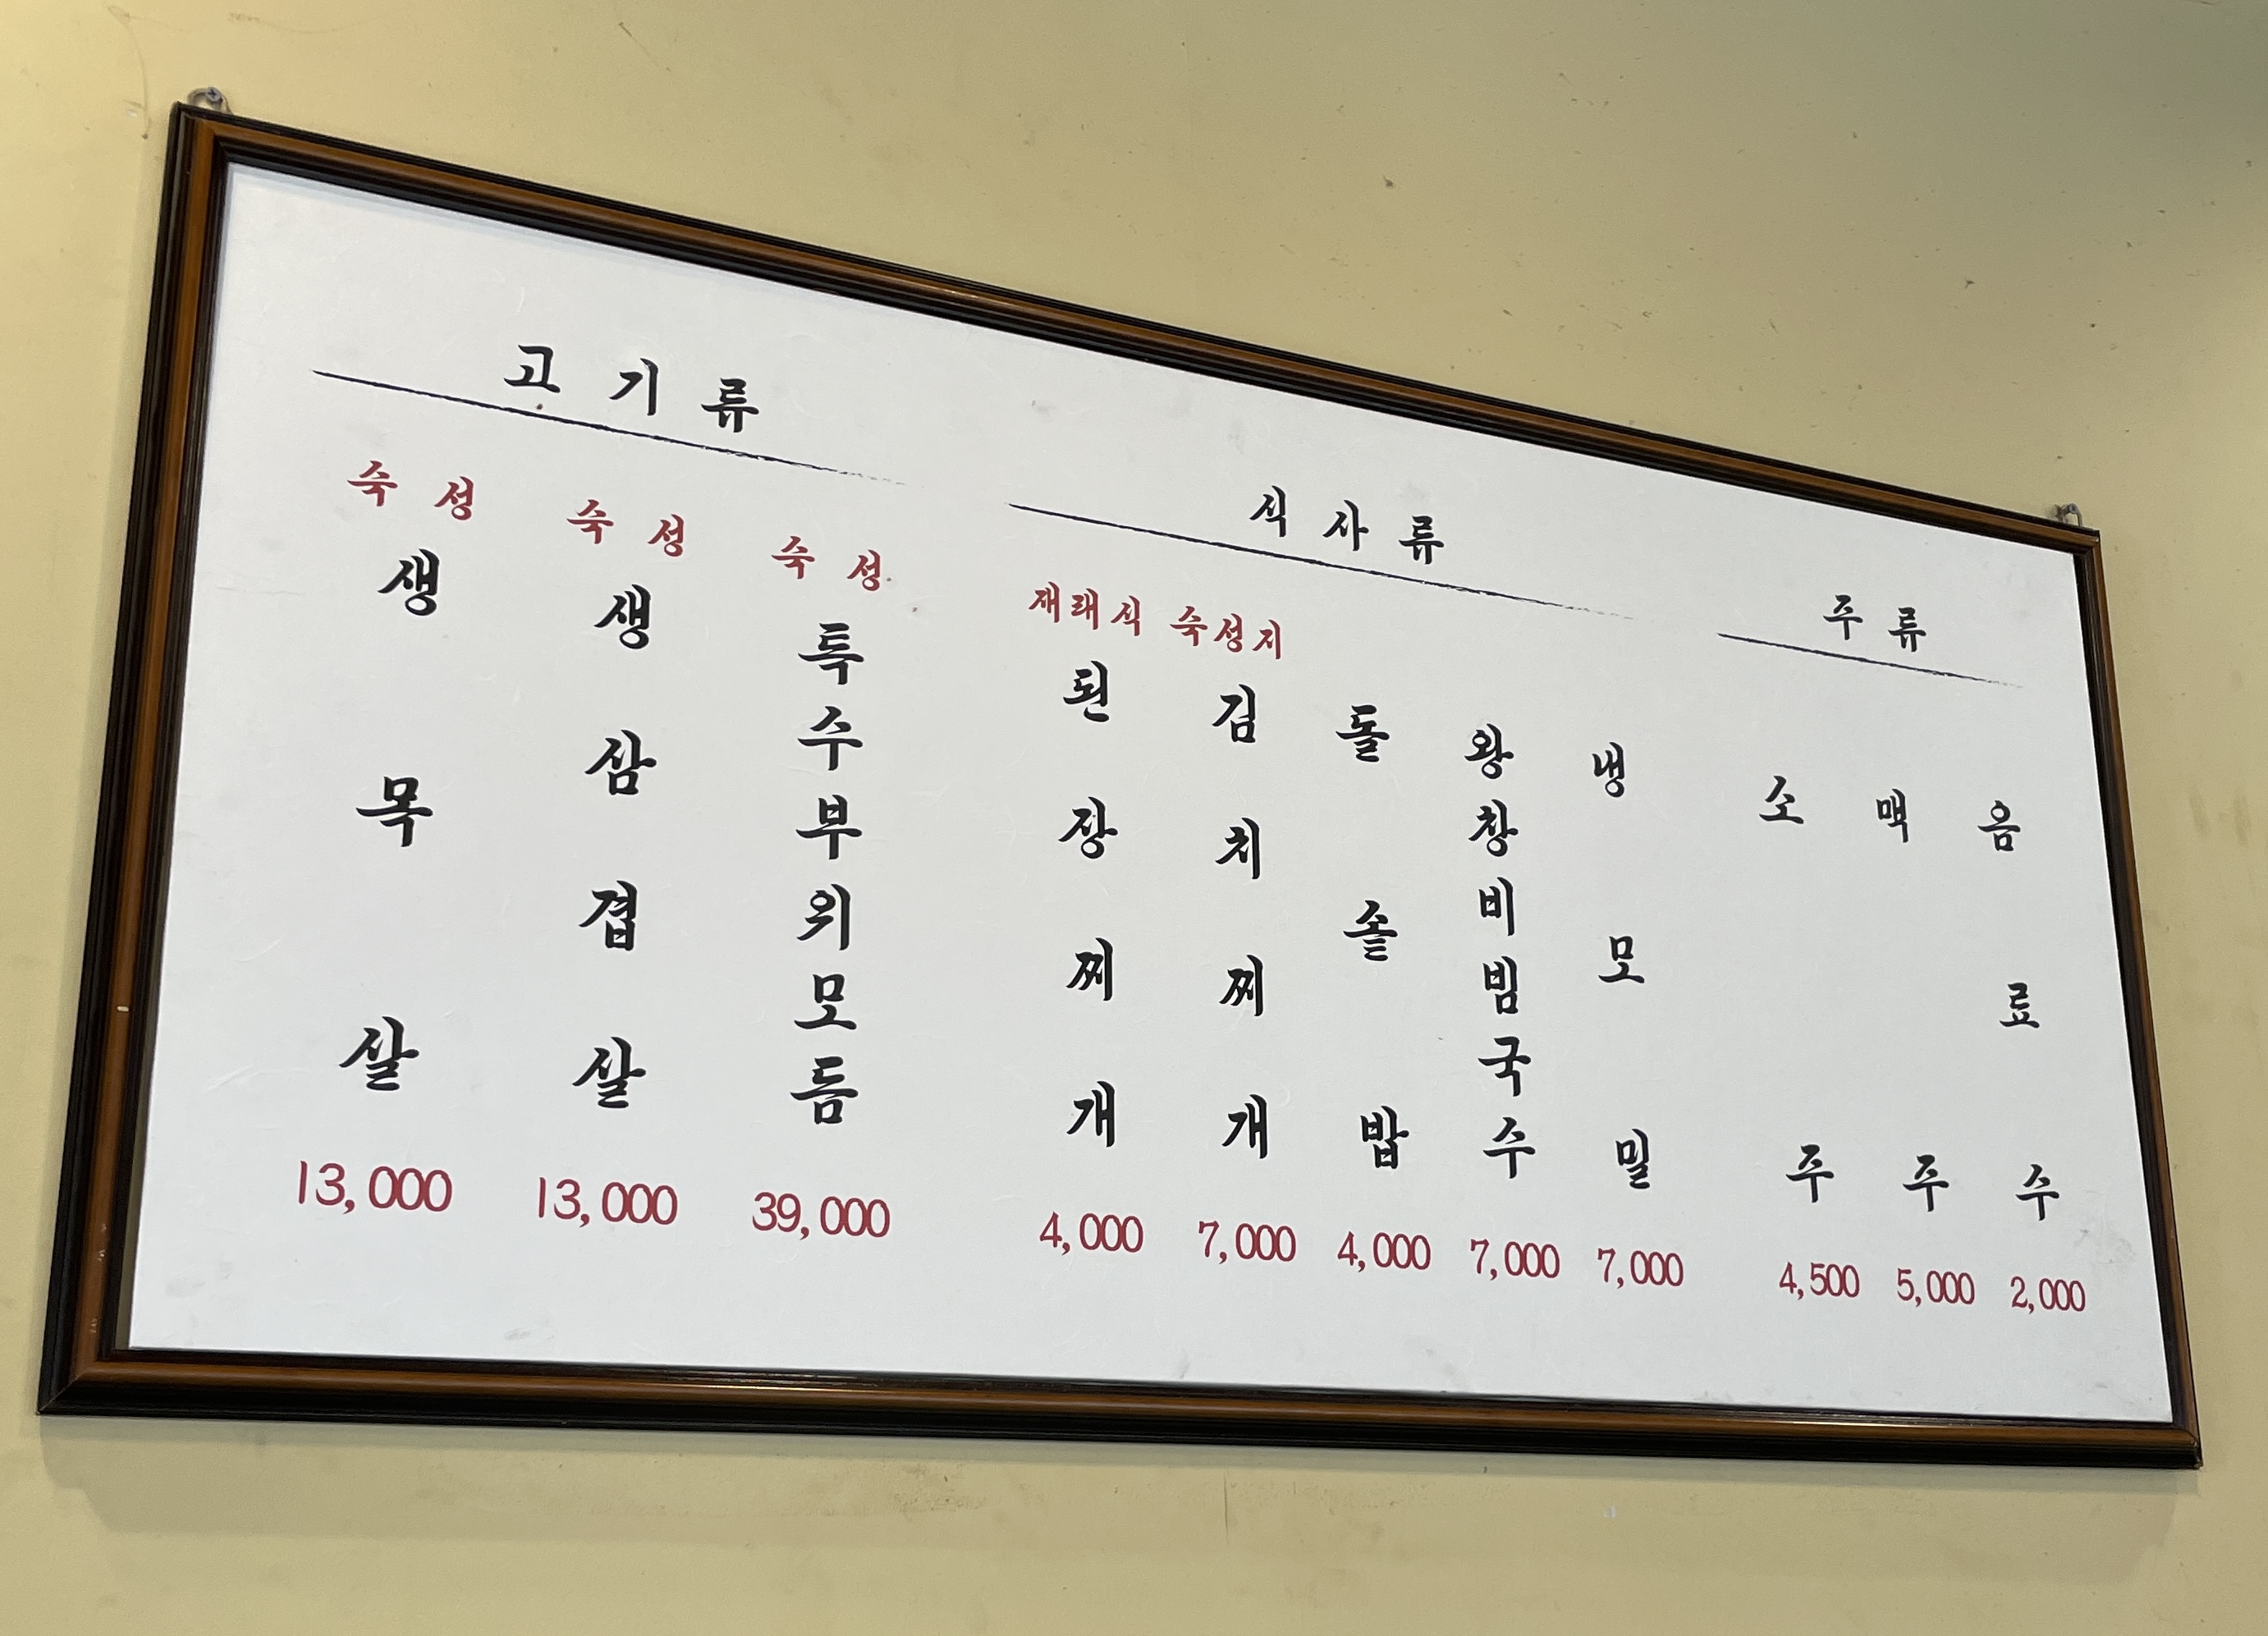 고기류
숙성
생목살
13,000
숙성
생삼겹살
13,000
숙성
특수부위모듬
39,000
식사류
재래식
된장찌개
4,000
숙성지
김치찌개
7,000
돌솥밥
4,000
왕창비빔국수
7,000
냉모밀
7,000
주류
소주
4,500
맥주
5,000
음료수
2,000